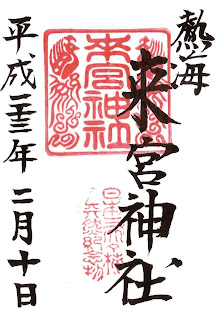 熱海
来宮神社
平成二三年二月十日
來宮神社